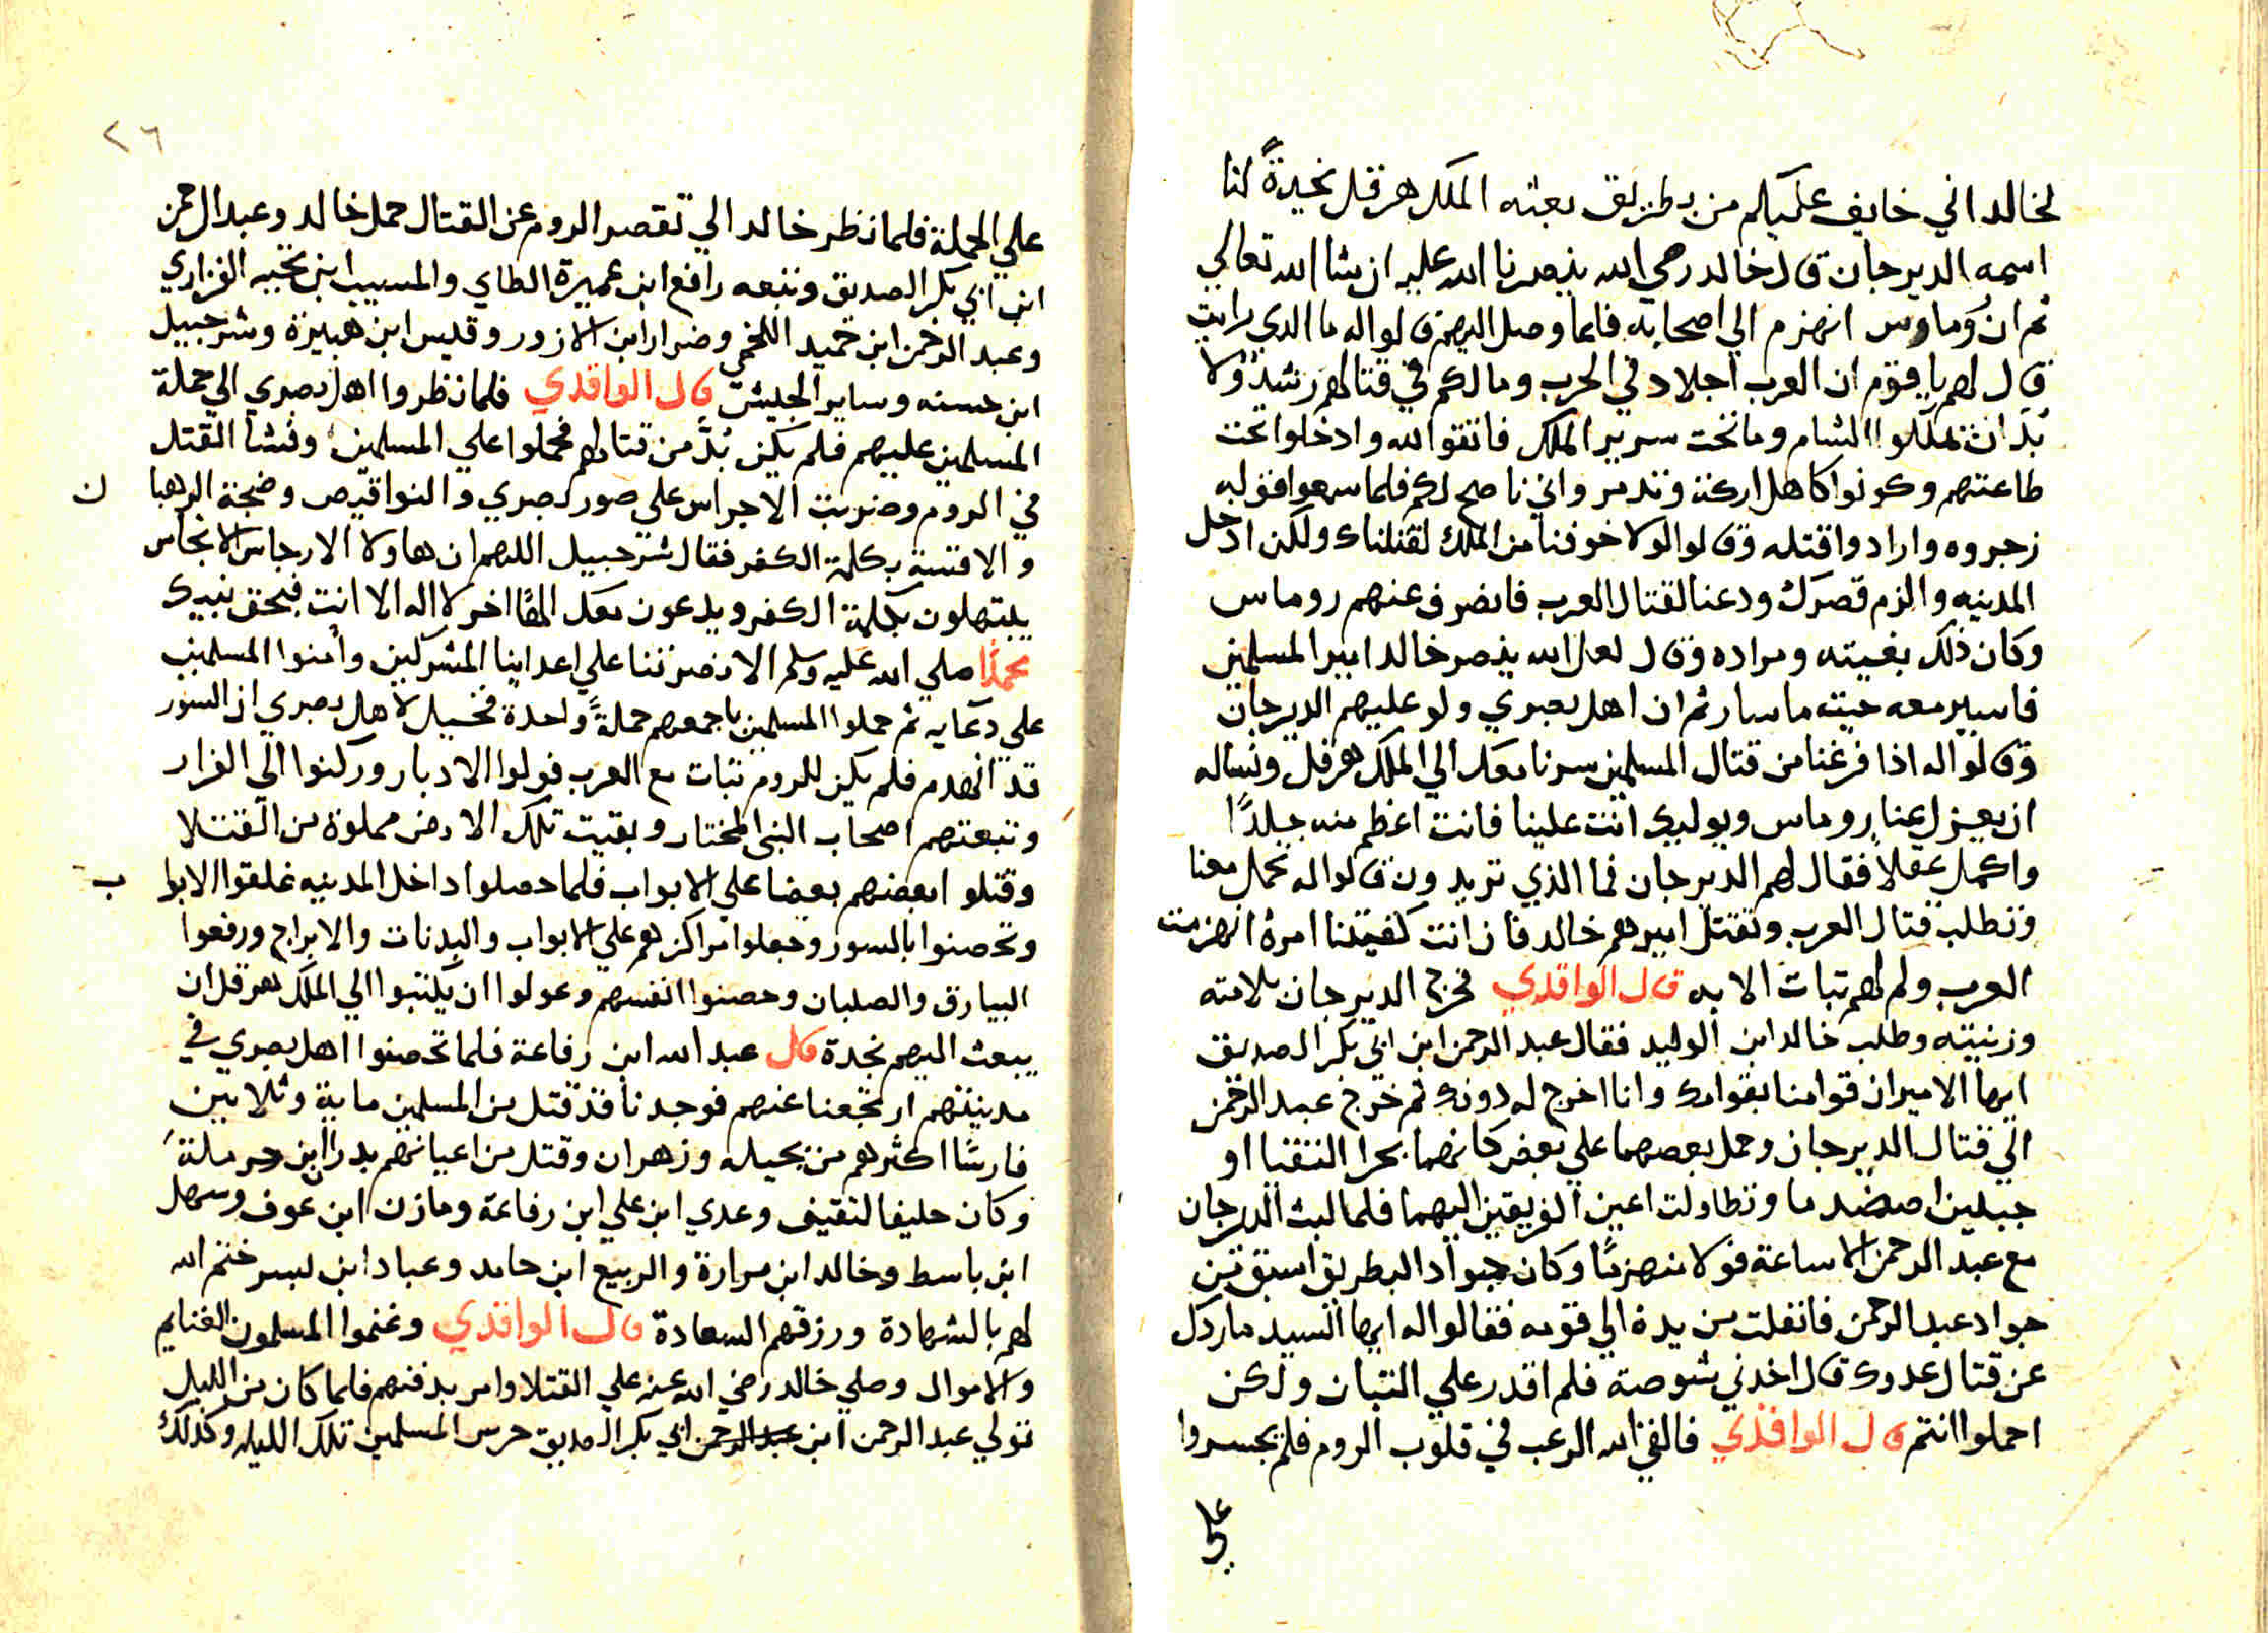 لخالد اني خايف عليكم من بطريق بعثه الملك هرقل نجدةً لنا
اسمه الديرجان قال خالد رضي الله ينصرنا الله عليه ان شا الله تعالي
ثم ان روماس انهزم الي اصحابه فلما وصل اليهم قالواله ما الدي رايت
قال لهم ياقوم ان العرب اجلاد في الحرب ومالكم في قتالهم رشد ولا
بدّ ان تملكوا الشام وما تحت سرير الملك فاتقوا الله وادخلوا تحت
طاعتهم وكونوا كاهل اركة وتدمر واني ناصح لكم فلما سمعوا قوله
زجروه وارادوا قتله وقالوا لولا خوفنا من الملك لقتلناك ولكن ادخل
المدينه والزم قصرك ودعنا لقتال العرب فانصرف عنهم روماس
وكان ذلك بغيته ومراده وقال لعل الله ينصر خالد امير المسلمين
فاسير معه حيث ما سار ثم ان اهل بصري ولو عليهم الديرجان
وقالواله اذا فرغنا من قتال المسلمين سرنا معك الي الملك هرقل ونساله
ان يعزل عنا روماس ويوليك انت علينا فانت اعظم منه جلدًا
واكمل عقلاً فقال لهم الديرجان فما الذي تريدون قالواله تحمل معنا
وتطلب قتال العرب وتقتل اميرهم خالد فان انت كفيتنا امره انهزمت
العرب ولم لهم تبات الا به قال الواقدي فخرج الديرجان بلامته
وزينته وطلب خالد ابن الوليد فقال عبد الرحمن ابن ابي بكر الصديق
ايها الامير ان قوامنا بقوامك وانا اخرج له دونك ثم خرج عبد الرحمن
الي قتال الديرجان وحمل بعضهما علي بعض كانهما بحرا التقيا او
جبلين اصطدما وتطاولت اعين الفريقين اليهما فلما لبث الديرجان
مع عبد الرحمن الا ساعة فولا منهزمًا وكان جواد البطريق اسبق من
جواد عبد الرحمن فانفلت من يده الي قومه فقالواله ايها السيد ماردك
عن قتال عدوك قال اخدني شوصة فلم اقدر علي التبات ولكن
احملوا انتم قال الواقدي فالقي الله الرعب في قلوب الروم فلم يجسروا
علي
٢٦
علي الحملة فلما نظر خالد الي تقصر الروم عن القتال حمل خالد وعبد الرحمن
ابن ابي بكر الصديق وتبعه رافع ابن عميرة الطاي والمسيب ابن نجيبه الفزاري
وعبد الرحمن ابن حميد اللخمي وضرار ابن الازور وقيس ابن هبيرة وشرحبيل
ابن حسنه وساير الجيش قال الواقدي فلما نظروا اهل بصري الي حملة
المسلمين عليهم فلم يكن بدّ من قتالهم فحملوا علي المسلمين وفشا القتل
في الروم وضربت الاجراس علي صور بصري والنواقيص وضجة الرهبا ن
والاقسة بكلمة الكفر فقال شرحبيل اللهم ان هاولا الارجاس الانجاس
يبتهلون بكلمة الكفر ويدعون معك الهًا اخر لا اله الا انت فبحق نبيك
محمدًا صلي الله عليه وسلم الا نصرتنا علي اعداينا المشركين وامنوا المسلمين
علي دعايه ثم حملوا المسلمين باجمعهم حملةً واحدة فخيل لاهل بصري ان السور
قد انهدم فلم يكن للروم تبات مع العرب فولوا الادبار وركنوا الي الفرار
وتبعتهم اصحاب النبي المختار وبقيت تلك الارض مملوة من القتلا
وقتلو ابعضهم بعضا علي الابواب فلما حصلوا داخل المدينه غلقوا الابوا ب
وتحصنوا بالسور وجعلوا مراكزهم علي الابواب والبدنات والابراج ورفعوا
البيارق والصلبان وحصنوا انفسهم وعولوا ان يكتبوا الي الملك هرقل ان
يبعث اليهم نجدة قال عبد الله ابن رفاعة فلما تحصنوا اهل بصري في
مدينتهم ارتجعنا عنهم فوجدنا قد قتل من المسلمين ماية وثلاثين
فارسًا اكثرهم من بجيله وزهران وقتل من اعيانهم بدر ابن حرملة
وكان حليفا لثقيف وعدي ابن علي ابن رفاعة ومازن ابن عوف وسهل
ابن باسط وخالد ابن مرارة والربيع ابن حامد وعباد ابن بسر ختم الله
لهم بالشهادة ورزقهم السعادة قال الواقدي وغنموا المسلمون الغنايم
والاموال وصلي خالد رضي الله عنه علي القتلا وامر بدفنهم فلما كان من الليل
تولي عبد الرحمن ابن عبد الرحمن ابي بكر الصديق حرس المسلمين تلك الليله وكذلك